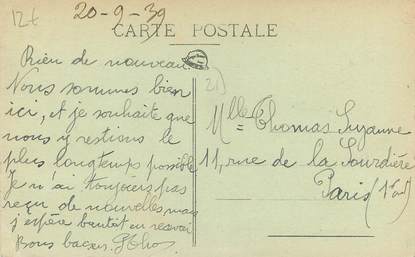 12€
20-9-39
CARTE POSTALE
Rien de nouveau.
Nous sommes bien
ici, et je souhaite que
nous y restions le
plus longtemps possible
Je n'ai toujours pas
reçu de nouvelles, mais
j'espère bientôt en recevoir
Bons baisers.
Mlle Thomas Suzanne
11, rue de la Sourdière
Paris (1er)